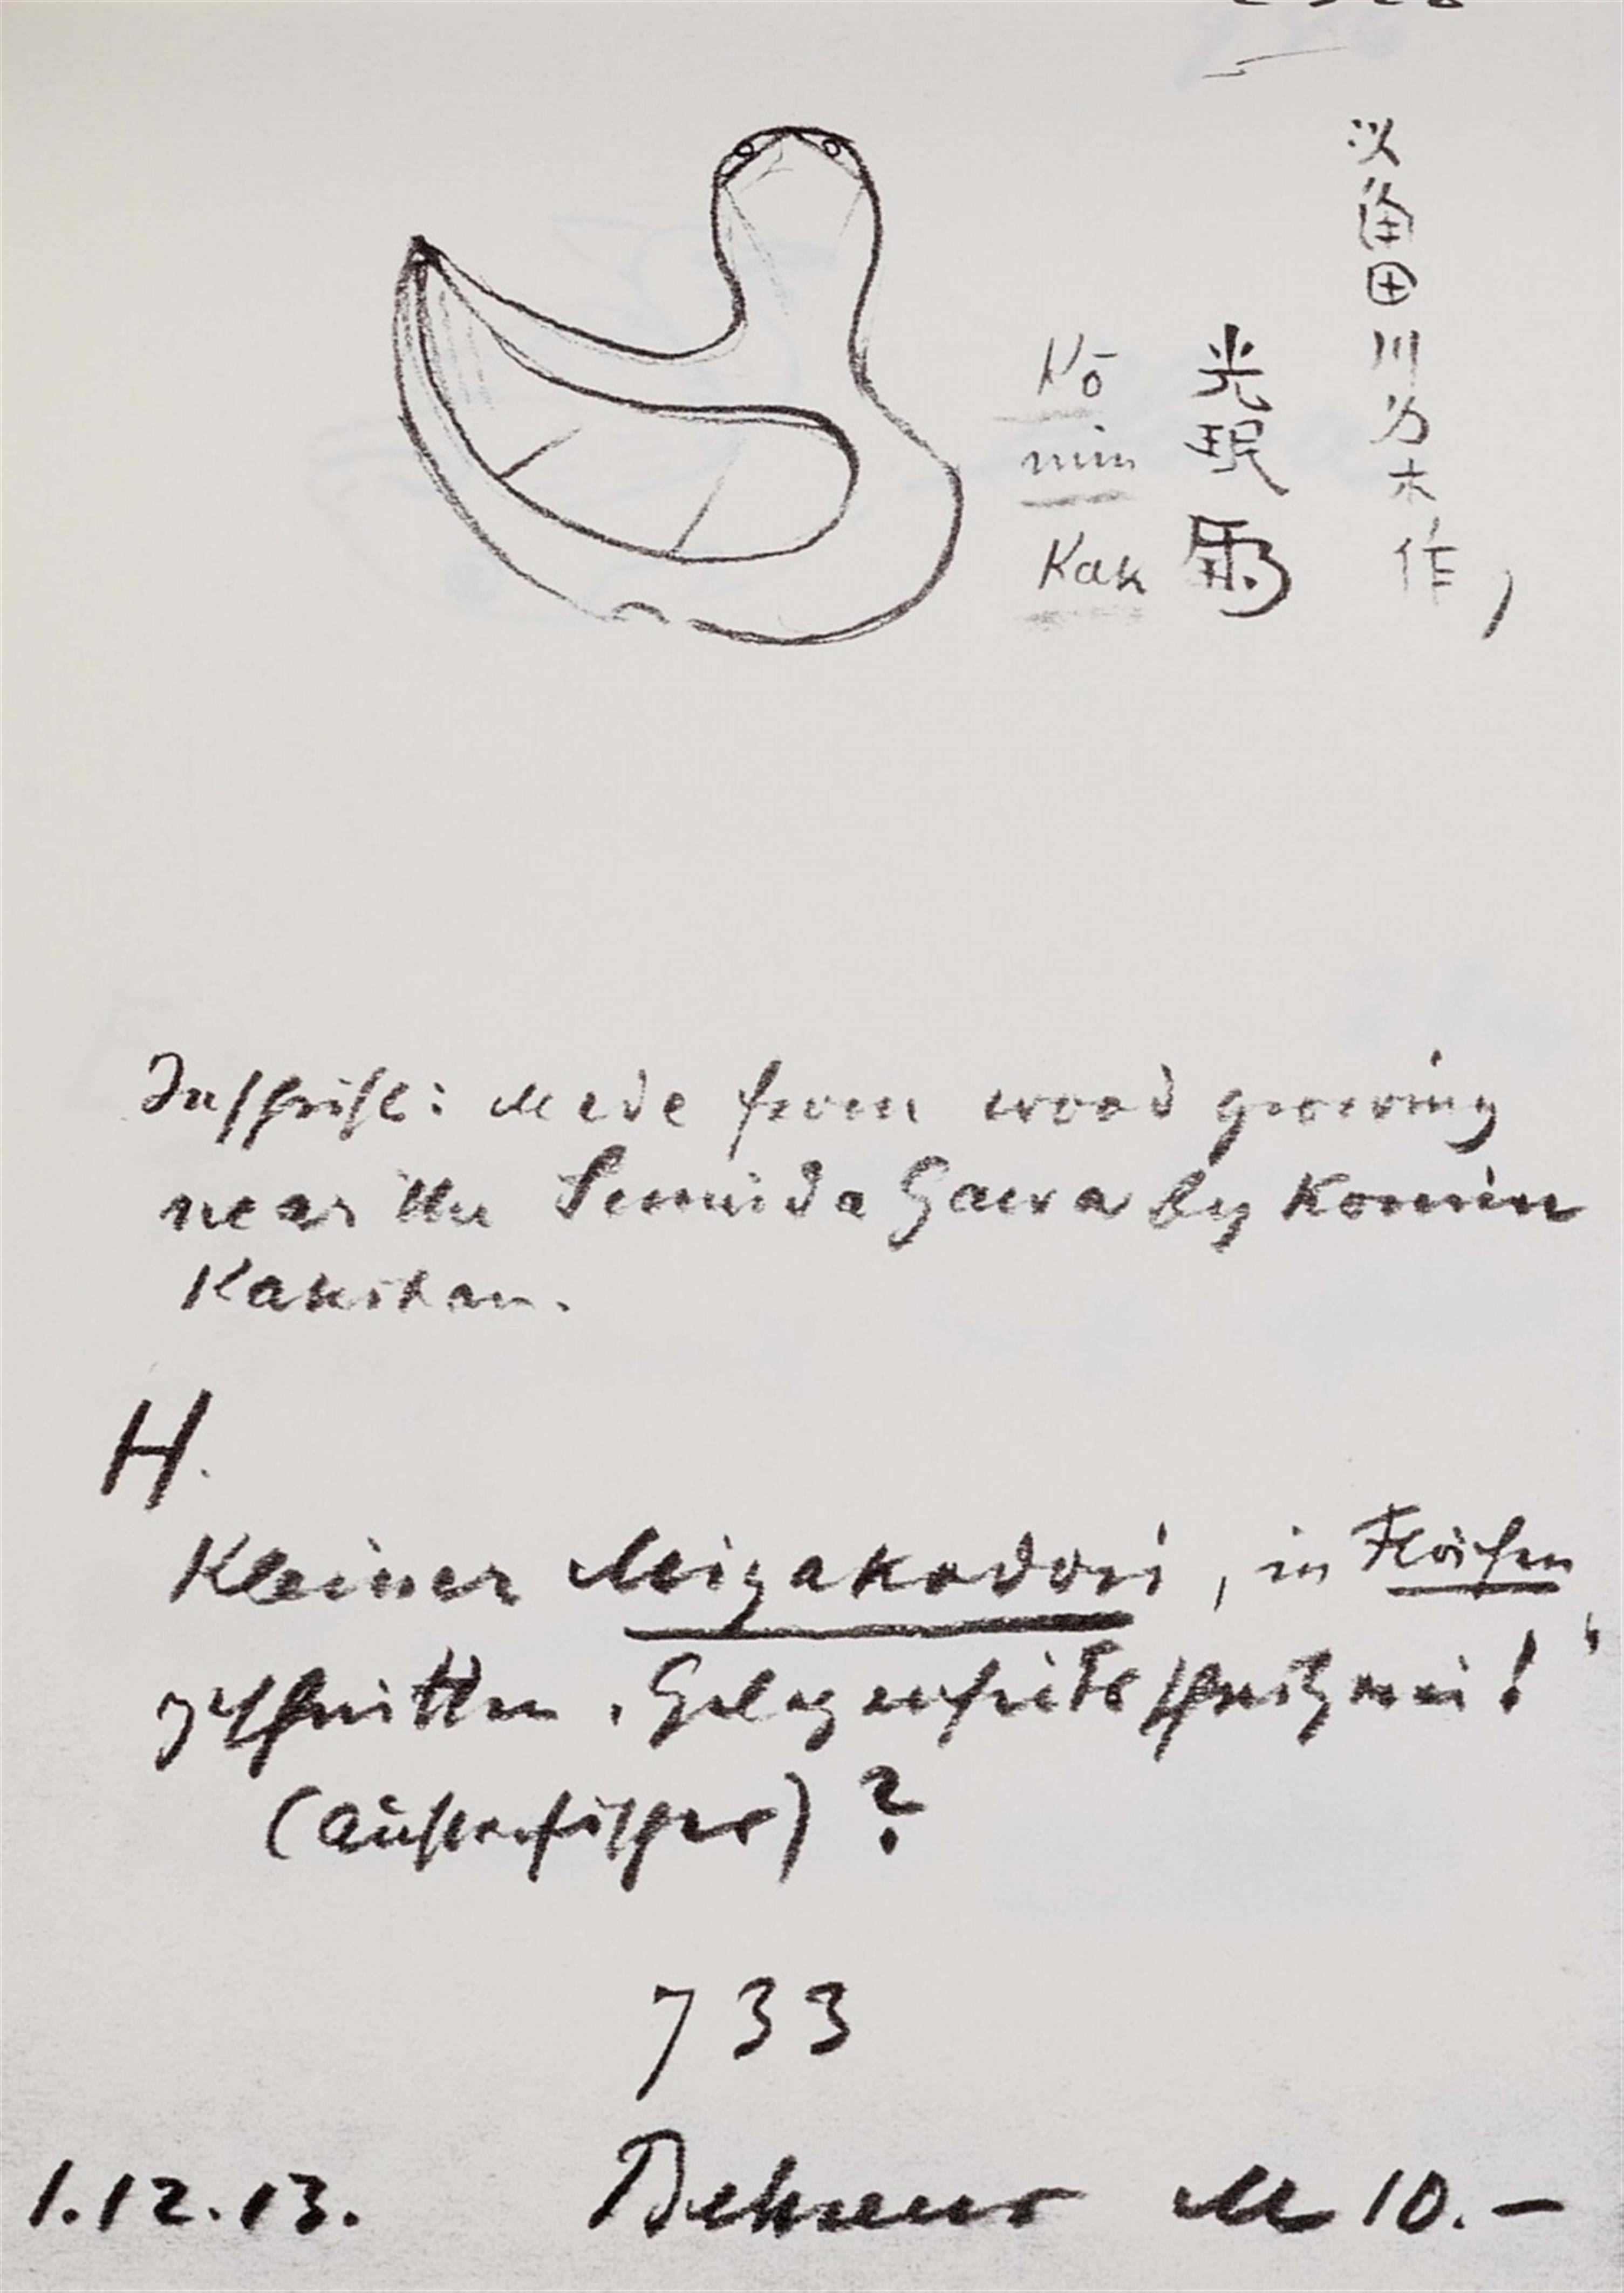 以角田川乃木作,
Kō 光
min 珉
Kak
Inschrift: Made from wood growing
near the Sumida Gawa by Komin
Kakihan.
H.
Kleiner Miyakodori, in Flächen
geschnitten. Gelegenheitsschnitzerei!
(Austernfischer)?
733
1.12.13. Behrens M 10.-